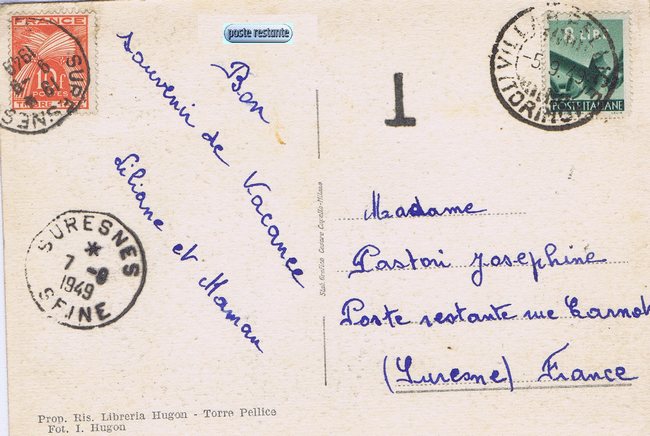 poste restante
FRANCE
10f
POSTES
TIMBRE TAXE
SURESNES
1949
T
8 LIRE
POSTE ITALIANE
Bon
souvenir de Vacance
Liliane et Maman
SURESNES
7 -9
1949
SEINE
Madame
Pastori Josephine
Poste restante rue Carnot
(Suresne) France
Prop. Ris. Libreria Hugon - Torre Pellice
Fot. I. Hugon